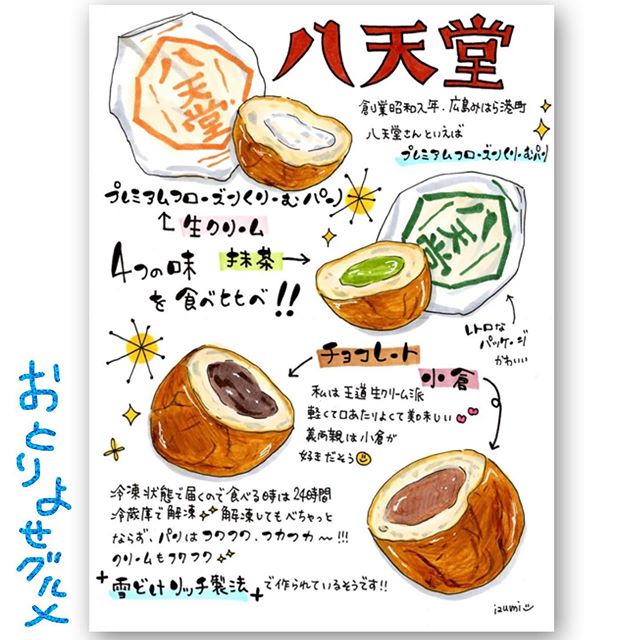 八天堂
八天堂
創業昭和八年、広島みはら港町
八天堂さんといえば
プレミアムフローズンくりーむパン
プレミアムフローズンくりーむパン
↑生クリーム
八天堂
抹茶→
4つの味
を食べくらべ!!
レトロな
パッケージ
かわいい
チョコレート
小倉
私は王道生クリーム派
軽くて口あたりよくて美味しい
義両親は小倉が
好きだそう
冷凍状態で届くので食べる時は24時間
冷蔵庫で解凍 解凍してもべちゃっと
ならず、パンはフワフワ、フカフカ〜!!!
クリームもフワフワ
雪どけリッチ製法 で作られているそうです!!
izumi
おとりよせグルメ